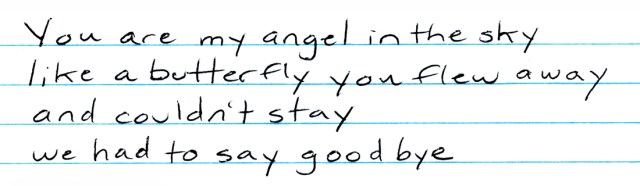 You are my angel in the sky
like a butterfly you flew away
and couldn't stay
we had to say goodbye